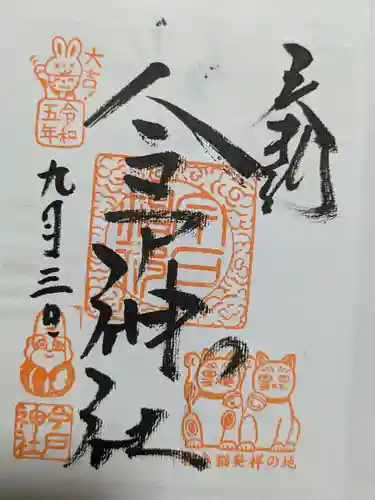 奉拝
今戸神社
大吉
令和
五年
九月三日
今戸
神社
今戸
神社
猫発祥の地